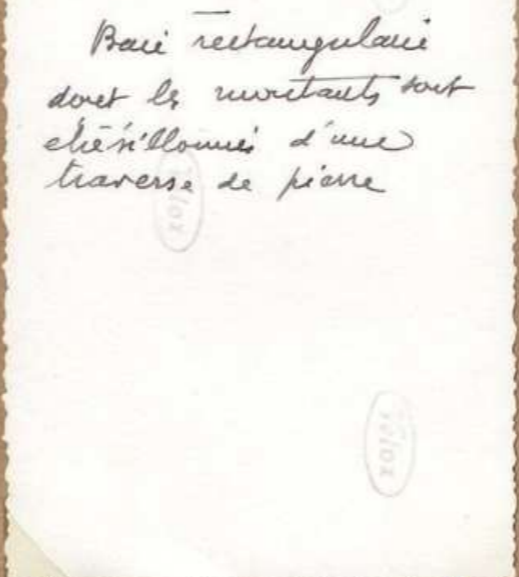 Baie rectangulaire
dont les montants sont
étrésillonnés d'une
traverse de pierre
Velox
Velox